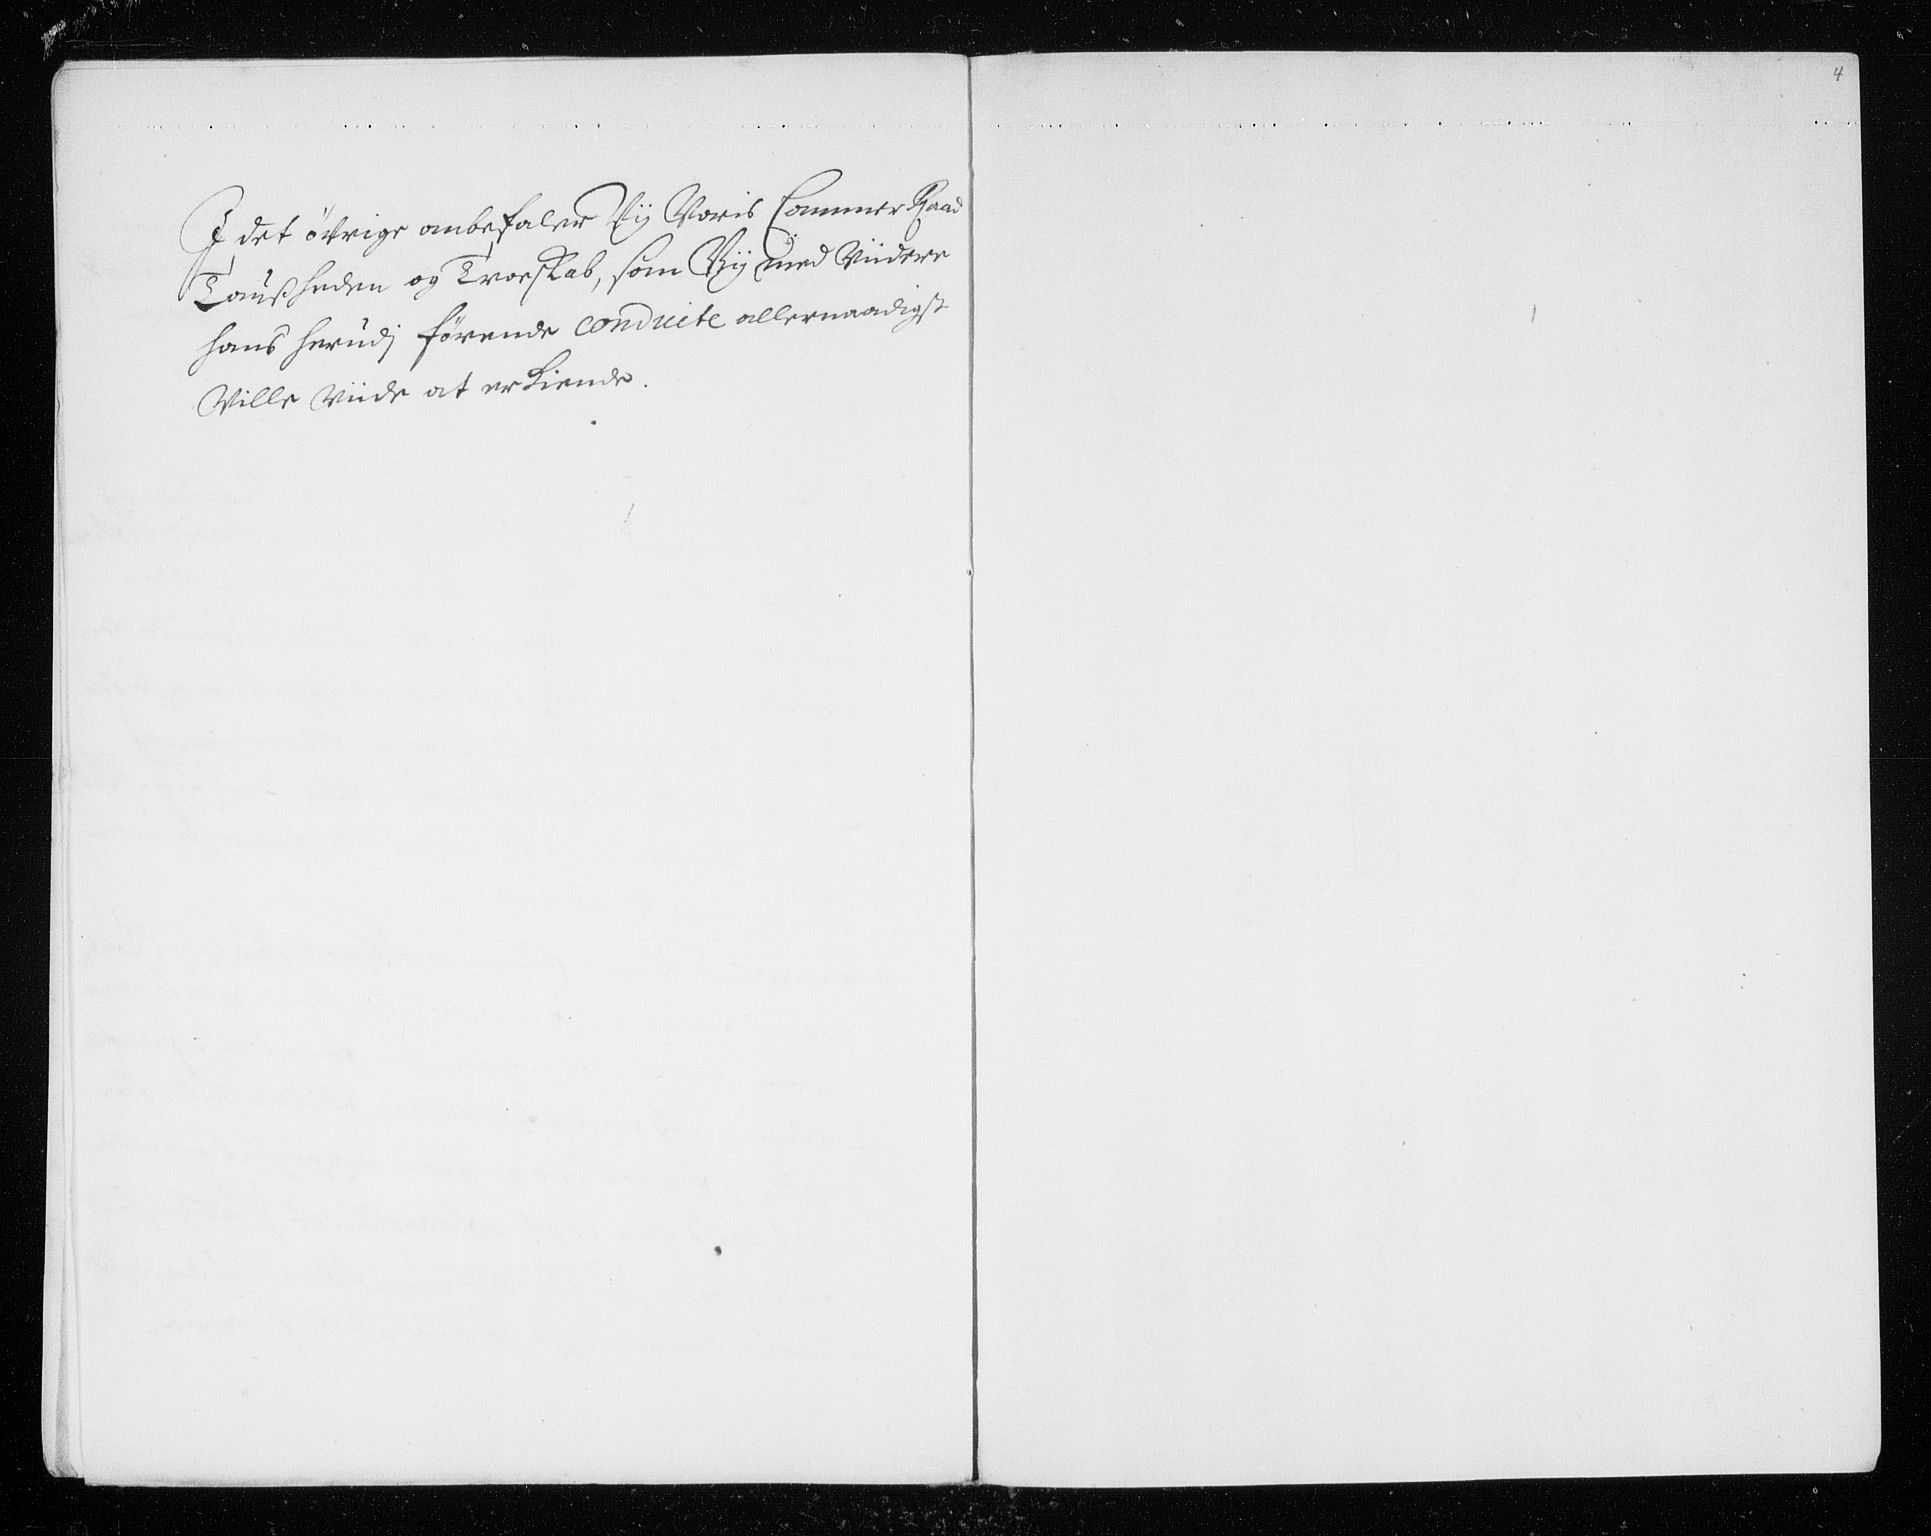 4
I det öfrige anbefaler Vij Voris Cammer Raad
Taußheden og Troeskab, som Vij med Viidere
hans herudj førende conduite allernaadigst
Ville Viide at erkiende.